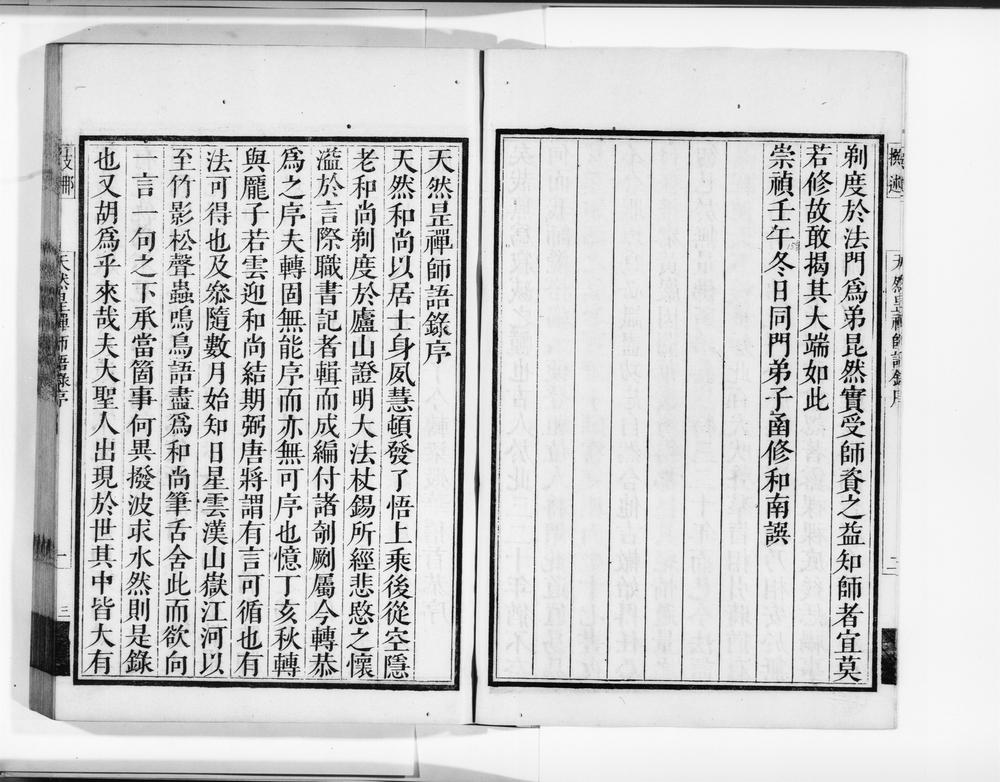 剃度於法門爲弟昆然實受師資之益知師者宜莫
若修故敢揭其大端如此
崇禎壬午冬日同門弟子函修和南譔
天然昰禪師語錄序
天然和尚以居士身夙慧頓發了悟上乘後從空隱
老和尚剃度於廬山證明大法杖錫所經悲愍之懷
溢於言際職書記者輯而成編付諸剞劂屬今轉恭
爲之序夫轉固無能序而亦無可序也憶丁亥秋轉
與龐子若雲迎和尚結期弼唐將謂有言可循也有
法可得也及叅隨數月始知日星雲漢山嶽江河以
至竹影松聲蟲鳴鳥語盡爲和尚筆舌舍此而欲向
一言一句之下承當箇事何異撥波求水然則是錄
也又胡爲乎來哉夫大聖人出現於世其中皆大有
天然昰禪師語錄序
三